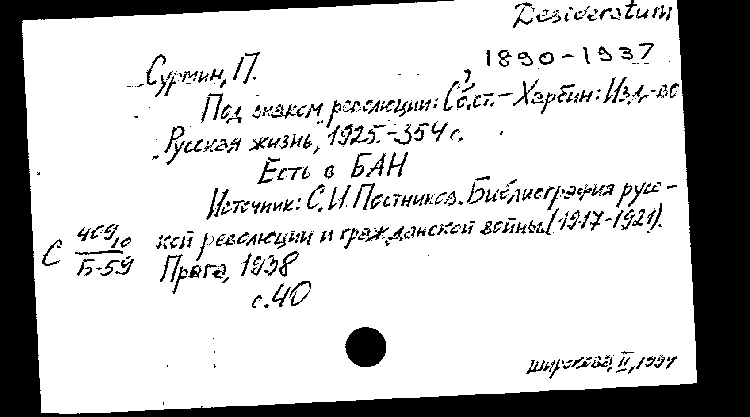 Desideratum
1890-1937
Сурмин, П.
Под знаком революции: Сб.ст.- Харбин: Изд-во
Русская жизнь, 1925.-354 с.
Есть в БАН
Источник: С.И. Постников. Библиография рус-
ской революции и гражданской войны (1917-1921).
С 409/10
Б-59
Прага, 1938
с.40
Широкова, II, 1994